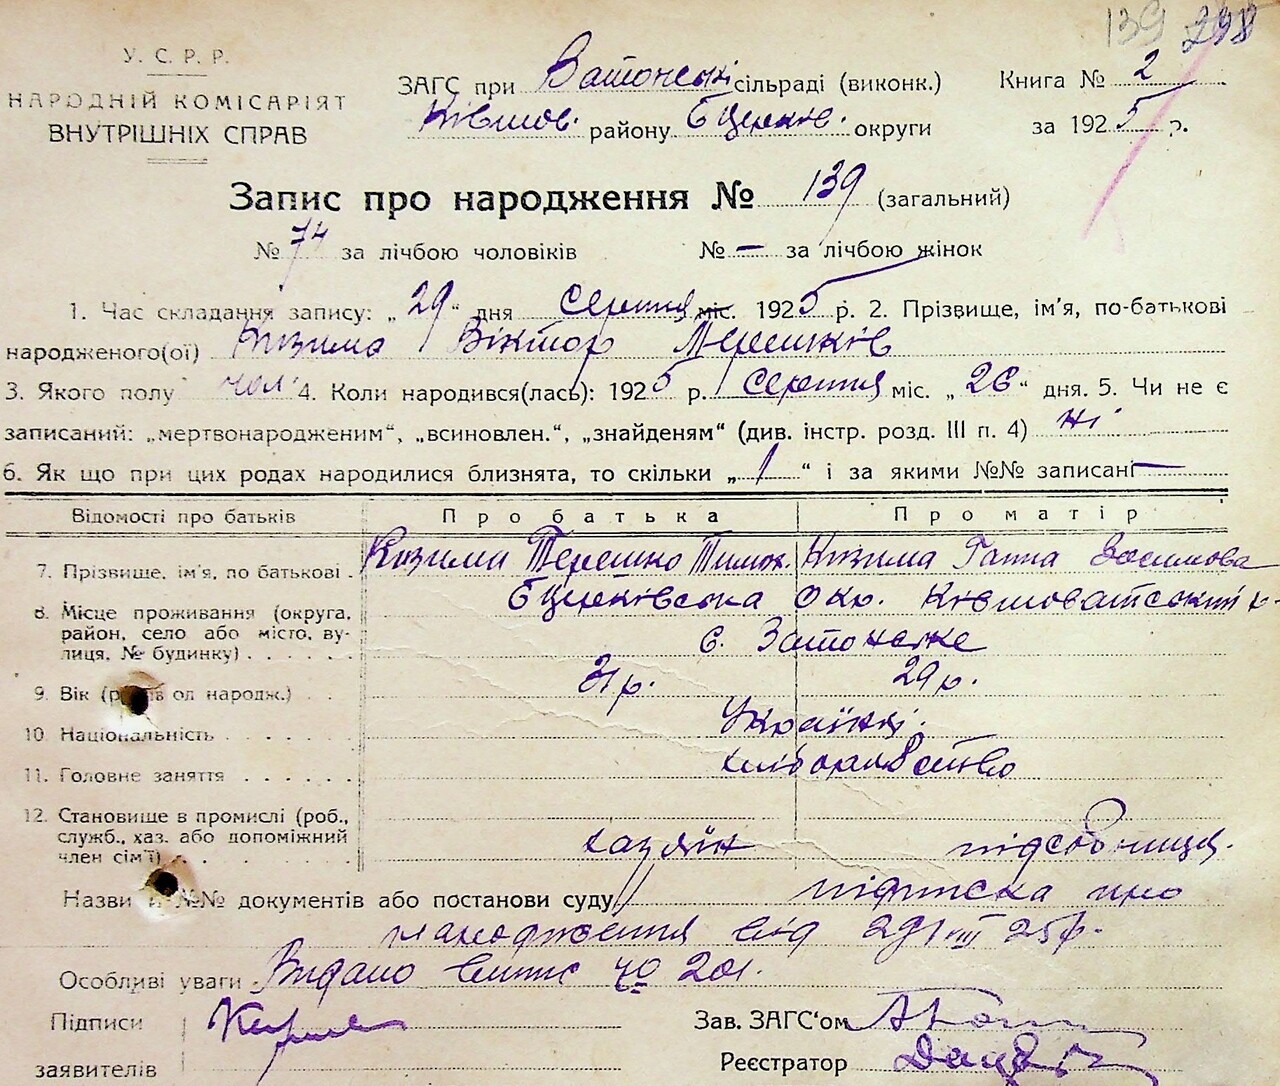 139 298
У. С. Р. Р.
НАРОДНІЙ КОМІСАРІЯТ
ВНУТРІШНІХ СПРАВ
ЗАГС при сільраді (виконк.)
Ківшов. району БЦерків. округи
Книга № 2
за 1925 р.
Запис про народження № 139 (загальний)
№ 74 за лічбою чоловіків № — за лічбою жінок
1. Час складання запису: „29“ дня Серпня міс. 1925 р. 2. Прізвище, ім'я, по-батькові
народженого(ої) Кизима Віктор Терешків
3. Якого полу чол. 4. Коли народився(лась): 1925 р. Серпня міс. „26“ дня. 5. Чи не є
записаний: „мертвонародженим“, „всиновлен.“, „знайденям“ (див. інстр. розд. III п. 4) ні
6. Як що при цих родах народилися близнята, то скільки „1“ і за якими №№ записані —
Відомості про батьків Про батька Про матір
7. Прізвище, ім'я, по батькові . Кизима Терешко Тимох. Кизима Ганна
8. Місце проживання (округа, район, село або місто, вулиця, № будинку) . . . . . БЦерківська окр. Ківшоватський р.
с. Затонське
9. Вік (років од народж.) . . 31 р. 29 р.
10 Національність . . . . . . Українці.
11. Головне заняття . . . . . . хліборобство
12. Становище в промислі (роб., служб., хаз. або допоміжний член сім'ї) . . . . . . хазяїн підсобниця.
Назви й №№ документів або постанови суду підписка про
народження від 29/VIII 25 р.
Особливі уваги Видано випис 201.
Підписи
заявителів
Зав. ЗАГС'ом
Реєстратор